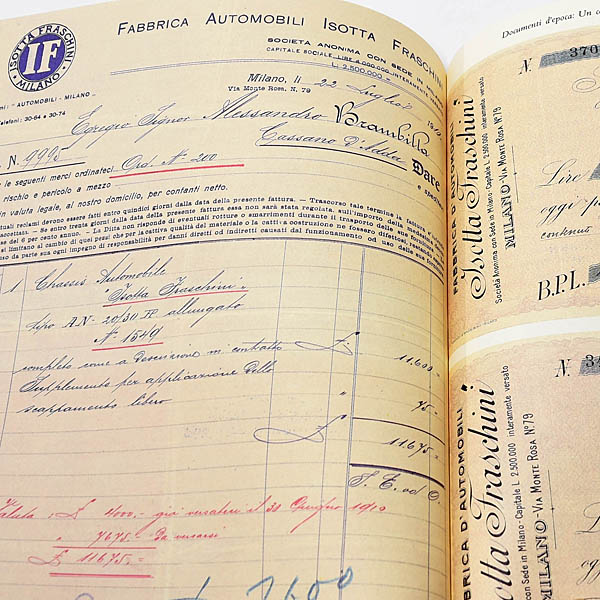 ISOTTA FRASCHINI
IF
MILANO
FABBRICA AUTOMOBILI ISOTTA FRASCHINI
SOCIETA ANONIMA CON SEDE IN
CAPITALE SOCIALE LIRE 4.000.000 INTERAMENTE
L. 2.500.000
Milano, li 22 Luglio 1910
Via Monte Rosa, N. 79
AUTOMOBILI - MILANO
30-64 e 30-74
Egregio Signor Alessandro Brambilla
Cassano d'Adda
N. 9995
Dare
le seguenti merci ordinateci Ord. N° 200
rischio e pericolo a mezzo
in valuta legale, al nostro domicilio, per contanti netto.
reclami devono essere fatti entro quindici giorni dalla data della presente fattura. - Trascorso tale termine la fattura
accettata. - Se entro trenta giorni dalla data della presente fattura essa non sarà stata regolata, sull'importo della medesima
del 6 per cento annuo. - La Ditta non risponde di eventuali rotture o smarrimenti durante il trasporto delle sue
si limitano al cambio di quei pezzi che per la cattiva qualità del materiale o la cattiva costruzione ne fossero difettosi,
da parte sua ogni impegno di responsabilità per danni diretti od indiretti causati dal funzionamento od uso delle sue
1 Chassis Automobile
"Isotta Fraschini"
tipo AN- 20/30 HP allungato
N° 1549
completo come a descrizione in contratto £ 11.600=
Supplemento per applicazione dello
scappamento libero " 75=
£ 11.675=
S. E. od O.
Valuta: £ 4000.- già versateci il 30 Giugno 1910
" 7675.- da versarsi
£ 11675.-
£ 7600
Documenti d'epoca: Un
N. 370
FABBRICA D'AUTOMOBILI
Isotta Fraschini
Società Anonima con Sede in Milano - Capitale L. 2.500.000 interamente versato
MILANO - VIA MONTE ROSA N° 79
Lire
oggi
contenuto
B.P.L.
N. 3
FABBRICA D'AUTOMOBILI
Isotta Fraschini
con Sede in Milano - Capitale L. 2.500.000 interamente versato
MILANO - VIA MONTE ROSA N° 79
Lire
oggi